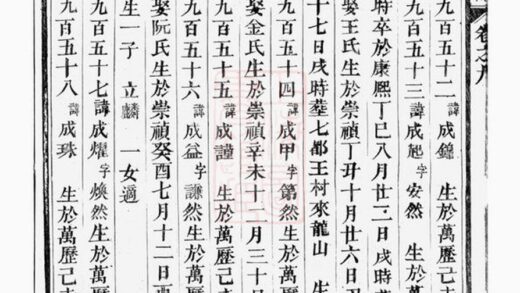 卷之
九百五十二 諱成錦 生於萬
九百五十三 諱成起 字安然 生於萬
時卒於康熙丁巳八月廿二日戌時葬
娶王氏生於崇禎丁丑十月廿六日丑
十七日戌時葬七都王村來龍山 生
九百五十四 諱成甲 字第然 生於萬
娶金氏生於崇禎辛未十一月三十日
九百五十五 諱成謹 生於萬歷己
九百五十六 諱成益 字謙然生於萬歷
娶阮氏生於崇禎癸酉七月十二日
生一子 立麟 一女適
九百五十七 諱成耀 字煥然生於萬歷
九百五十八 諱成珠 生於萬歷己